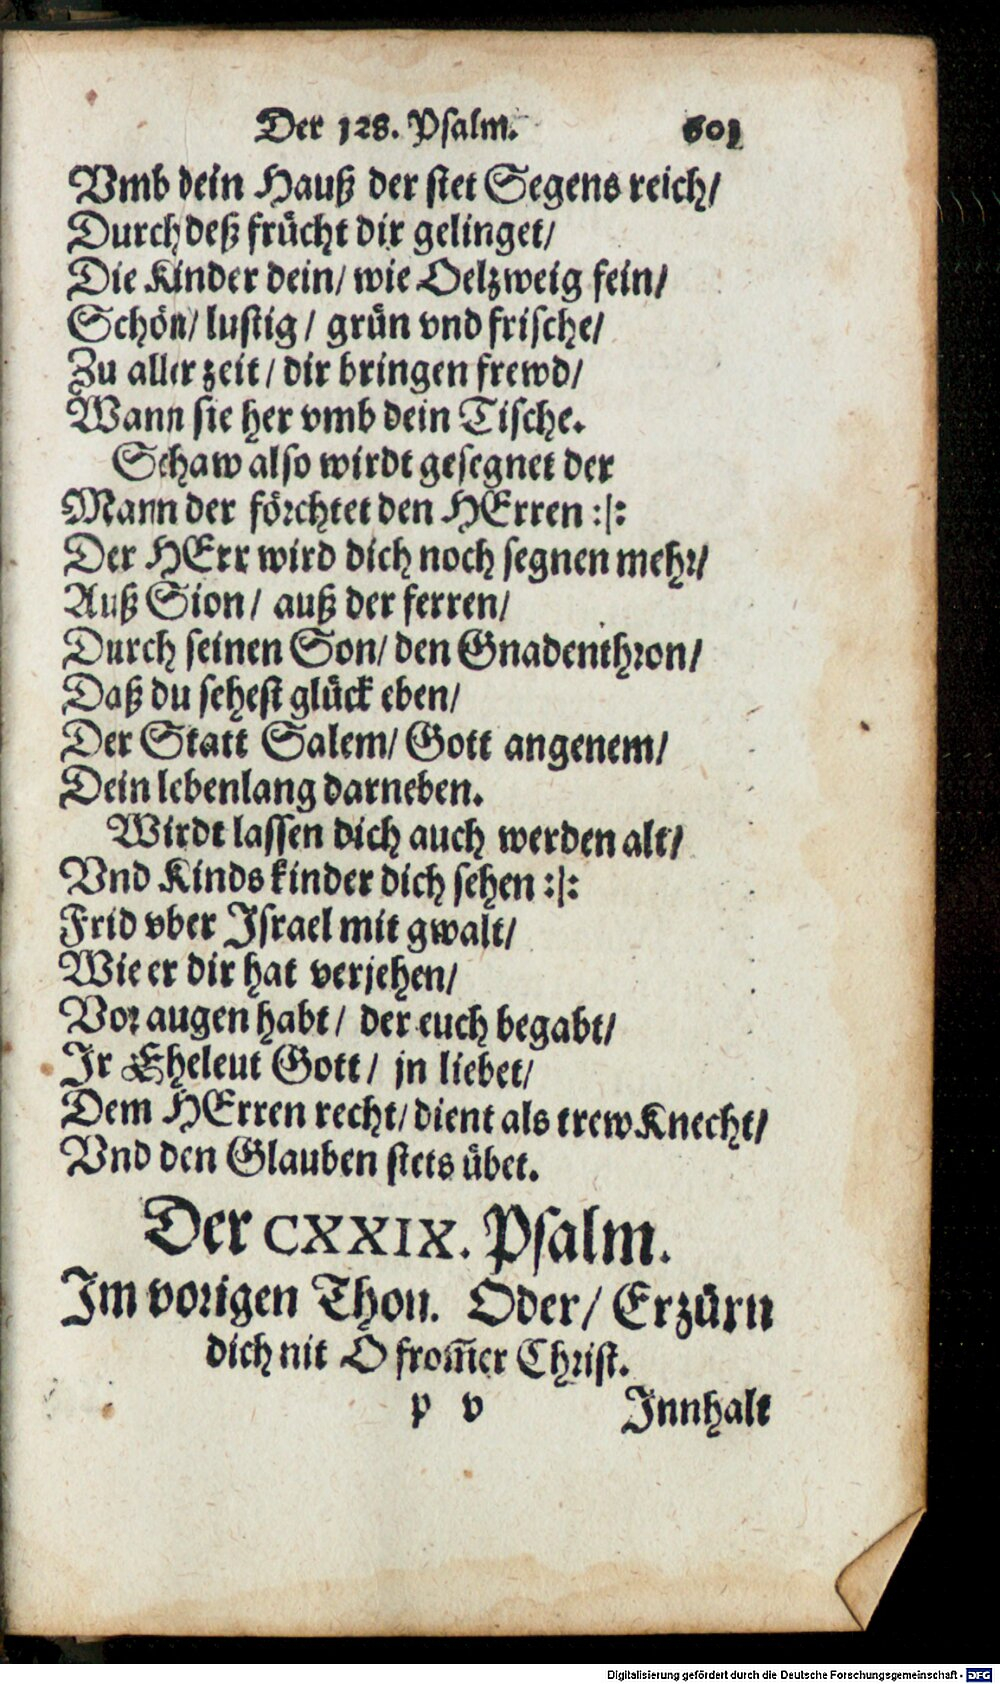 Der 128. Psalm. 601
Vmb dein Hauß der stet Segens reich/
Durch deß frücht dir gelinget/
Die Kinder dein/ wie Oelzweig fein/
Schön/ lustig/ grün vnd frische/
Zu aller zeit/ dir bringen frewd/
Wann sie her vmb dein Tische.
Schaw also wirdt gesegnet der
Mann der förchtet den HErren :|:
Der HErr wird dich noch segnen mehr/
Auß Sion/ auß der ferren/
Durch seinen Son/ den Gnadenthron/
Daß du sehest glück eben/
Der Statt Salem/ Gott angenem/
Dein lebenlang darneben.
Wirdt lassen dich auch werden alt/
Vnd Kindskinder dich sehen :|:
Frid vber Israel mit gwalt/
Wie er dir hat verjehen/
Vor augen habt/ der euch begabt/
Ir Eheleut Gott/ jn liebet/
Dem HErren recht/ dient als trew Knecht/
Vnd den Glauben stets übet.
Der CXXIX. Psalm.
Im vorigen Thon. Oder/ Erzürn
dich nit O from̃er Christ.
p v Innhalt
Digitalisierung gefördert durch die Deutsche Forschungsgemeinschaft - DFG